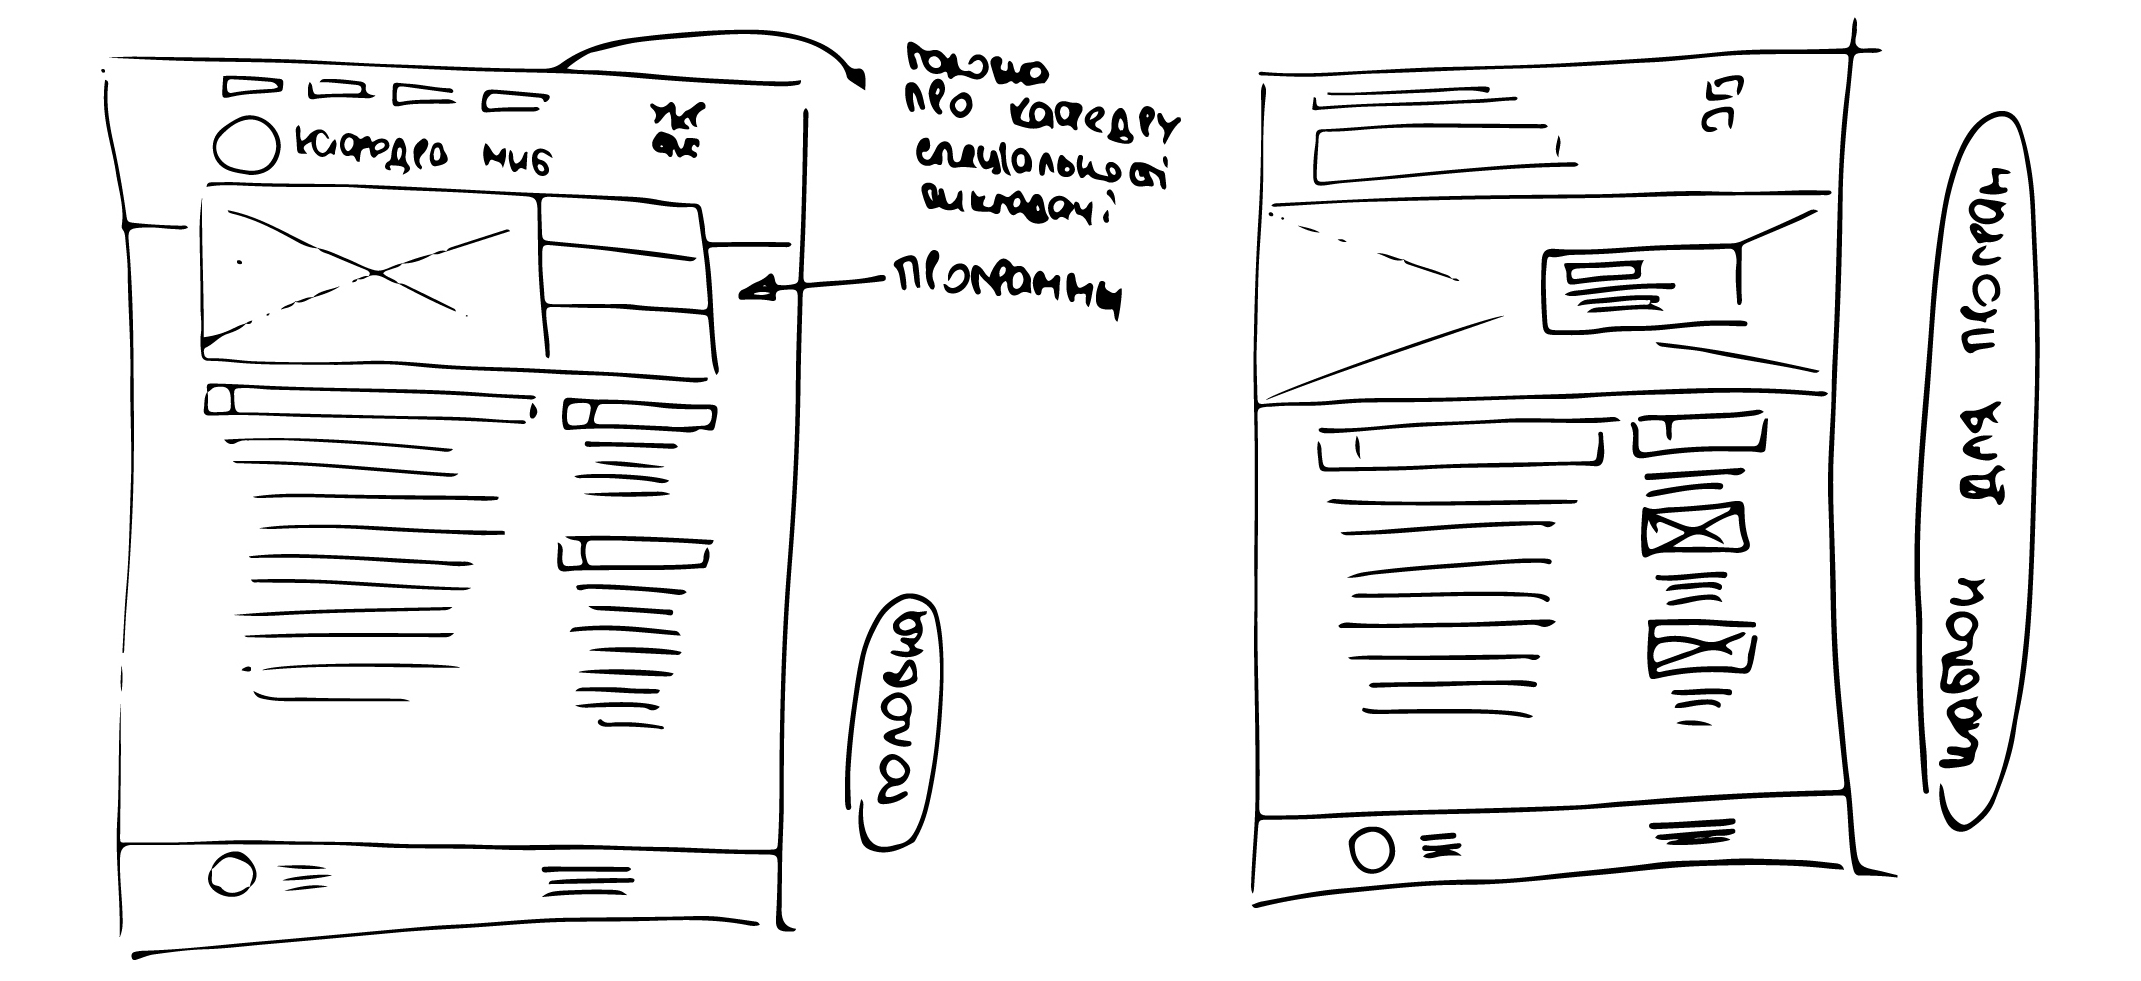 кафедра миб
головна
про кафедру
спеціальності
викладачі
программи
головна
шаблон для програм